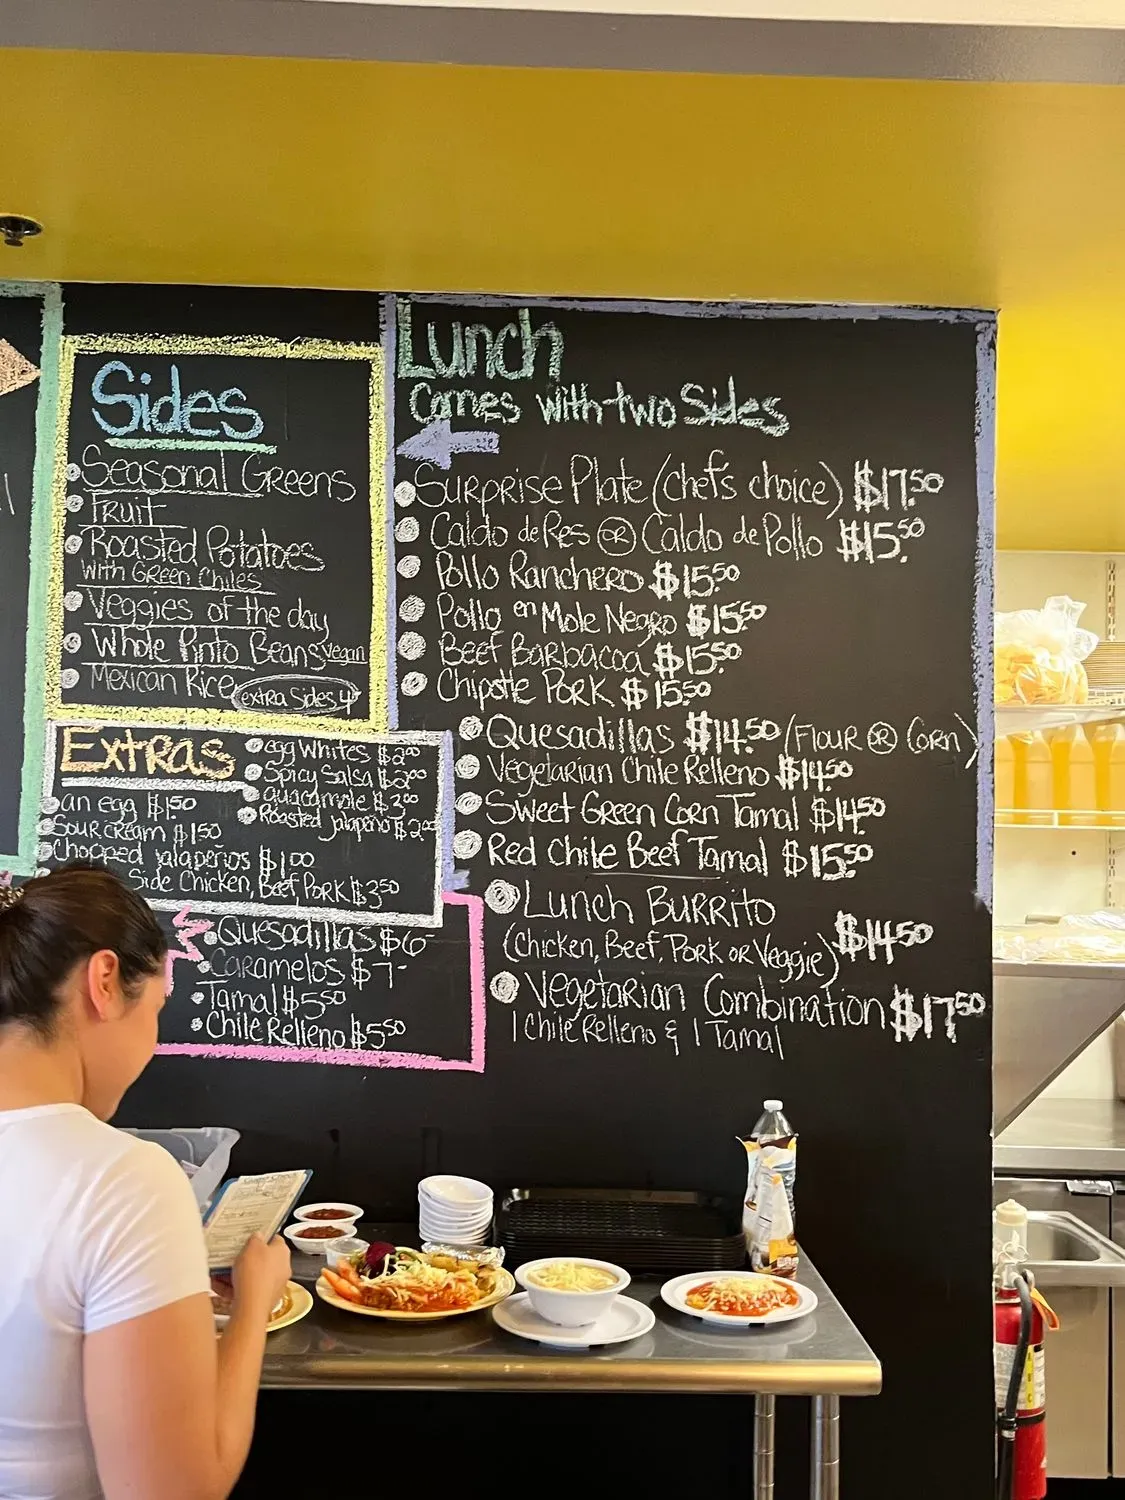 Sides
Seasonal Greens
Fruit
Roasted Potatoes
with Green Chiles
Veggies of the day
Whole Pinto Beans vegan
Mexican Rice
extra Sides 4
Extras
egg whites $2.00
Spicy Salsa $2.00
guacamole $3.00
Roasted jalapeño $2.00
an egg $1.50
Sour cream $1.50
Chopped jalapeños $1.00
Side Chicken, Beef, Pork $3.50
Quesadillas $6-
Caramelos $7-
Tamal $5.50
Chile Relleno $5.50
Lunch
Comes with two Sides
Surprise Plate (chef's choice) $17.50
Caldo de Res OR Caldo de Pollo $15.50
Pollo Ranchero $15.50
Pollo en Mole Negro $15.50
Beef Barbacoa $15.50
Chipotle Pork $15.50
Quesadillas $14.50 (Flour OR Corn)
Vegetarian Chile Relleno $14.50
Sweet Green Corn Tamal $14.50
Red Chile Beef Tamal $15.50
Lunch Burrito
(Chicken, Beef, Pork or Veggie) $14.50
Vegetarian Combination $17.50
1 Chile Relleno & 1 Tamal